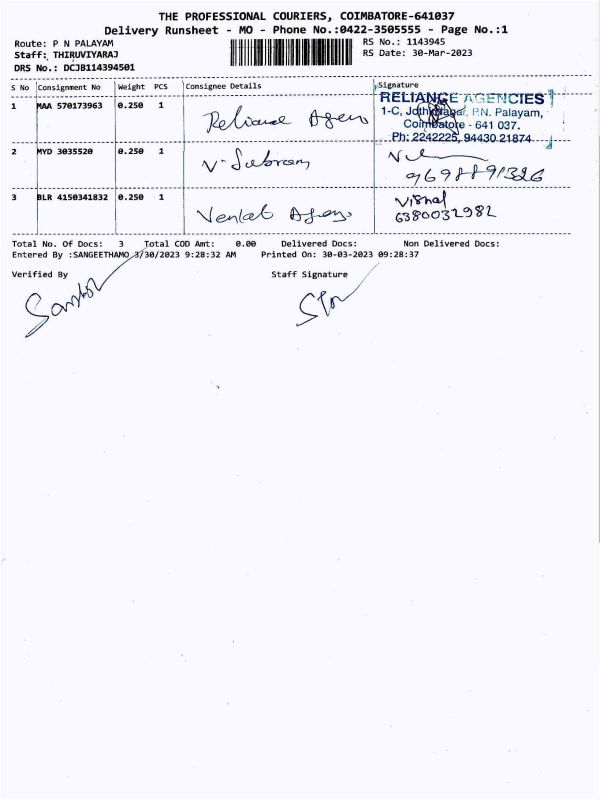 THE PROFESSIONAL COURIERS, COIMBATORE-641037
Delivery Runsheet - MO - Phone No.:0422-3505555 - Page No.:1
Route: P N PALAYAM
RS No.: 1143945
Staff: THIRUVIYARAJ
RS Date: 30-Mar-2023
DRS No.: DCJB114394501
S No Consignment No Weight PCS Consignee Details Signature
1 MAA 570173963 0.250 1 Reliance Agens
RELIANCE AGENCIES
1-C, Jothi Nagar, P.N. Palayam,
Coimbatore - 641 037.
Ph: 2242225, 94430 21874
2 MYD 3035520 0.250 1 V. Subram
9698891326
3 BLR 4150341832 0.250 1 Venkat
Vishal
6380032982
Total No. Of Docs: 3 Total COD Amt: 0.00 Delivered Docs: Non Delivered Docs:
Entered By :SANGEETHAMO 3/30/2023 9:28:32 AM Printed On: 30-03-2023 09:28:37
Verified By Staff Signature